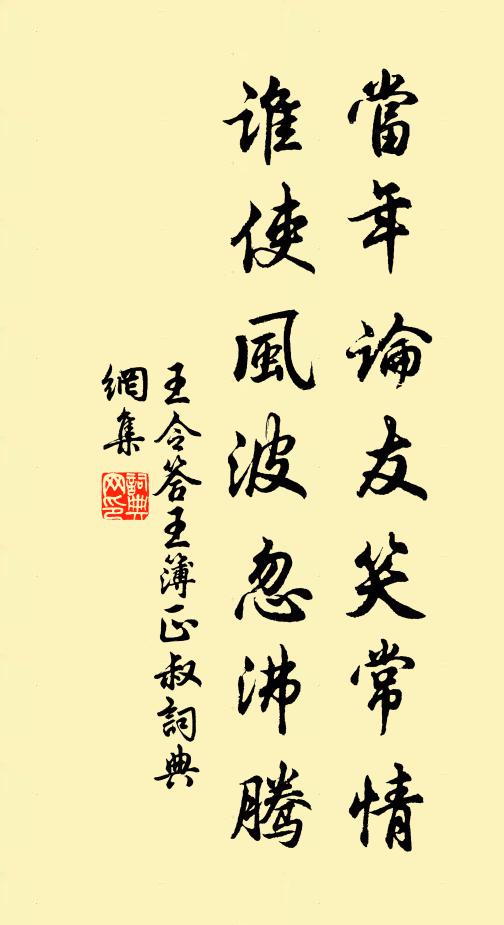 當年論友笑常情
誰使風波忽沸騰
王令答王簿正叔詞典
網集
詞典
网印